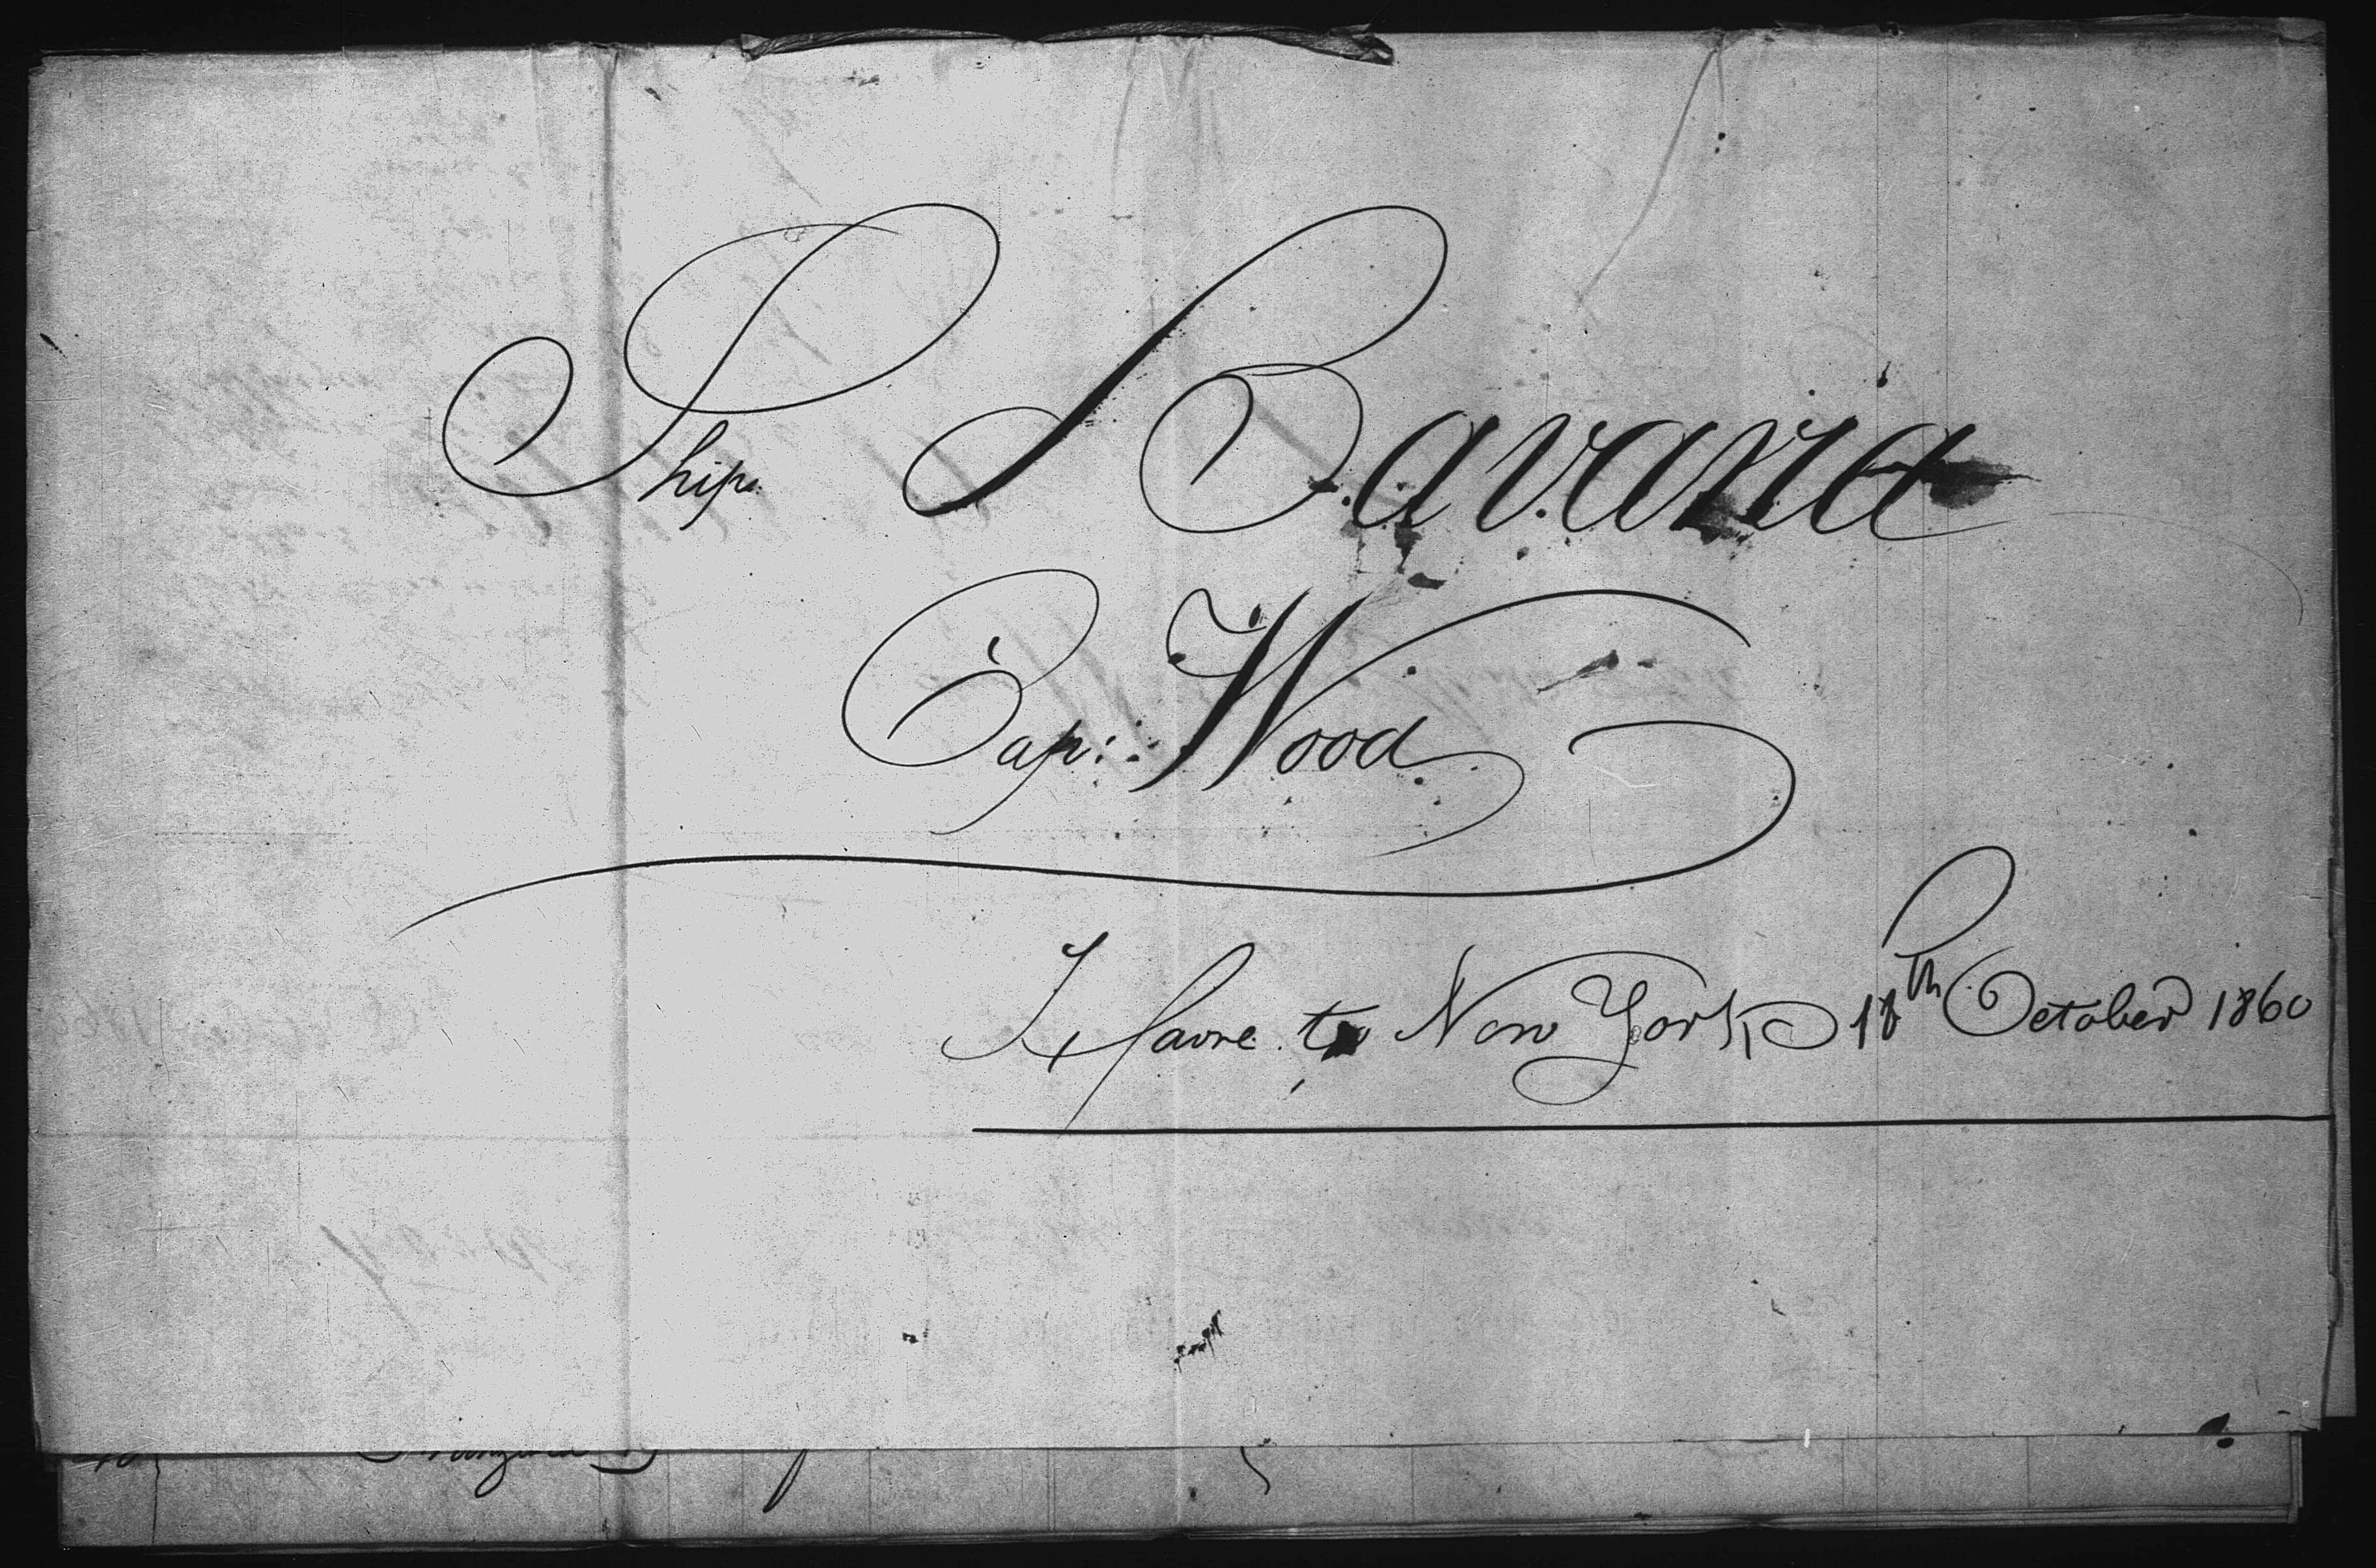 Ship Bavaria
Cap: Wood
Havre to New York 18th October 1860